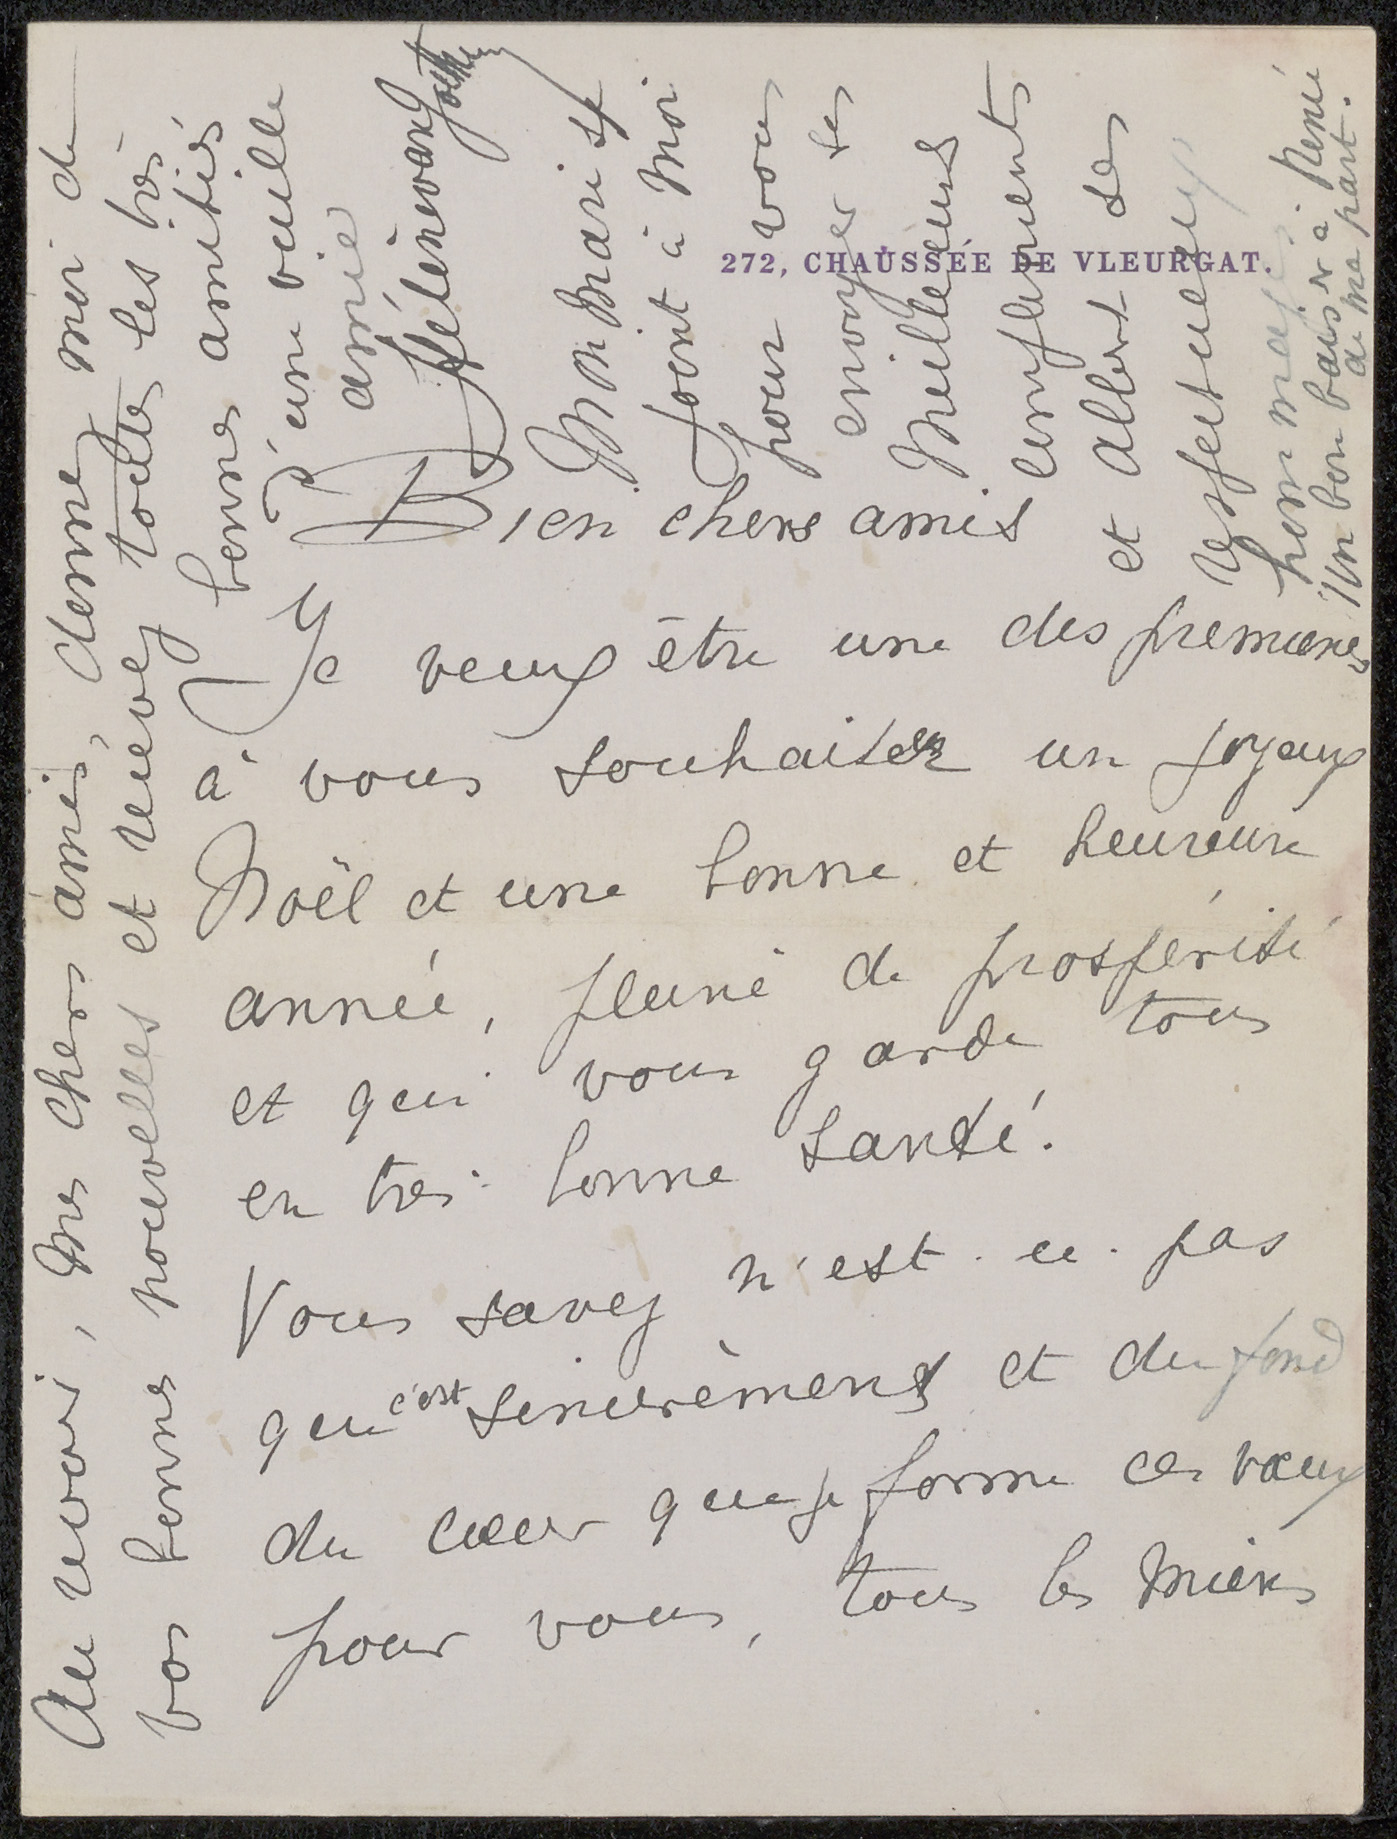 272, CHAUSSÉE DE VLEURGAT.
Bien chers amis
Je veux être une des premières
à vous souhaiter un joyeux
Noël et une bonne et heureuse
année, pleine de prospérité
et qui vous garde tous
en très bonne santé.
Vous savez n'est-ce-pas
que c'est sincèrement et du fond
du cœur que je forme ces vœux
pour vous, tous les miens
Au revoir, mes chers amis, donnez moi de
vos bonnes nouvelles et recevez toutes les très
bonnes amitiés
d'une vieille
amie
Hélène van
Mon mari se
joint à moi
pour vous
envoyer ses
meilleurs
compliments
et Albert ses
respectueux
hommages
Un bon baiser à Renée
de ma part.